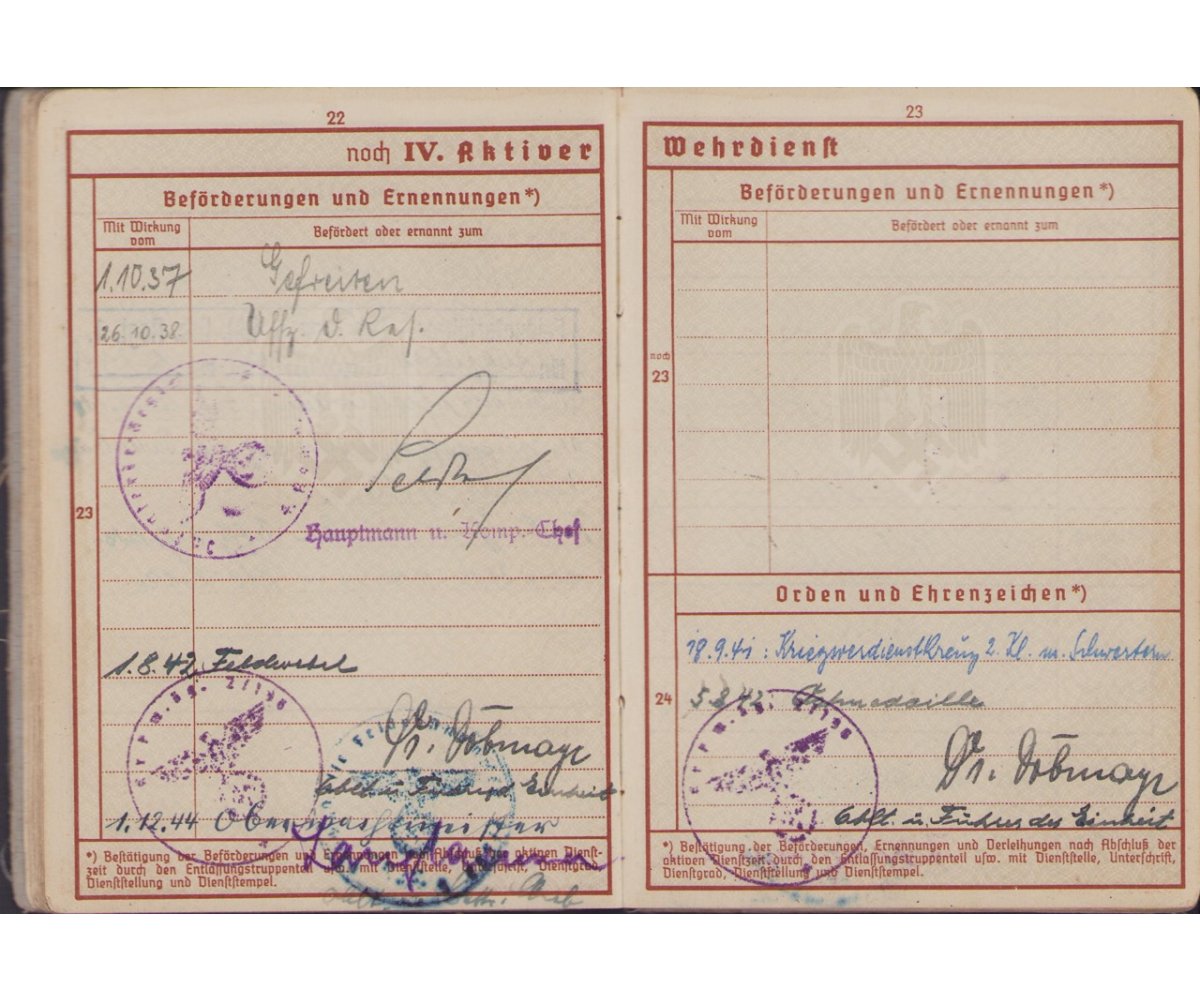 22
noch IV. Aktiver
Beförderungen und Ernennungen*)
Mit Wirkung vom
Befördert oder ernannt zum
1.10.37 Gefreiten
26.10.38. Uffz. d. Res.
23
Hauptmann u. Komp.-Chef
1.8.42 Feldwebel
2/196
Dr. Döbmayr
Oblt. u. Führer d. Einheit.
1.12.44 Oberwachtmeister
*) Bestätigung der Beförderungen und Ernennungen nach Abschluß der aktiven Dienst-
zeit durch den Entlassungstruppenteil usw. mit Dienststelle, Unterschrift, Dienstgrad,
Dienststellung und Dienststempel.
23
Wehrdienst
Beförderungen und Ernennungen*)
Mit Wirkung vom
Befördert oder ernannt zum
noch
23
Orden und Ehrenzeichen*)
18.9.41: Kriegsverdienstkreuz 2. Kl. m. Schwertern
24
5.8.42: Ostmedaille
2/196
Dr. Döbmayr
Oblt. u. Führer der Einheit
*) Bestätigung der Beförderungen, Ernennungen und Verleihungen nach Abschluß der
aktiven Dienstzeit durch den Entlassungstruppenteil usw. mit Dienststelle, Unterschrift,
Dienstgrad, Dienststellung und Dienststempel.